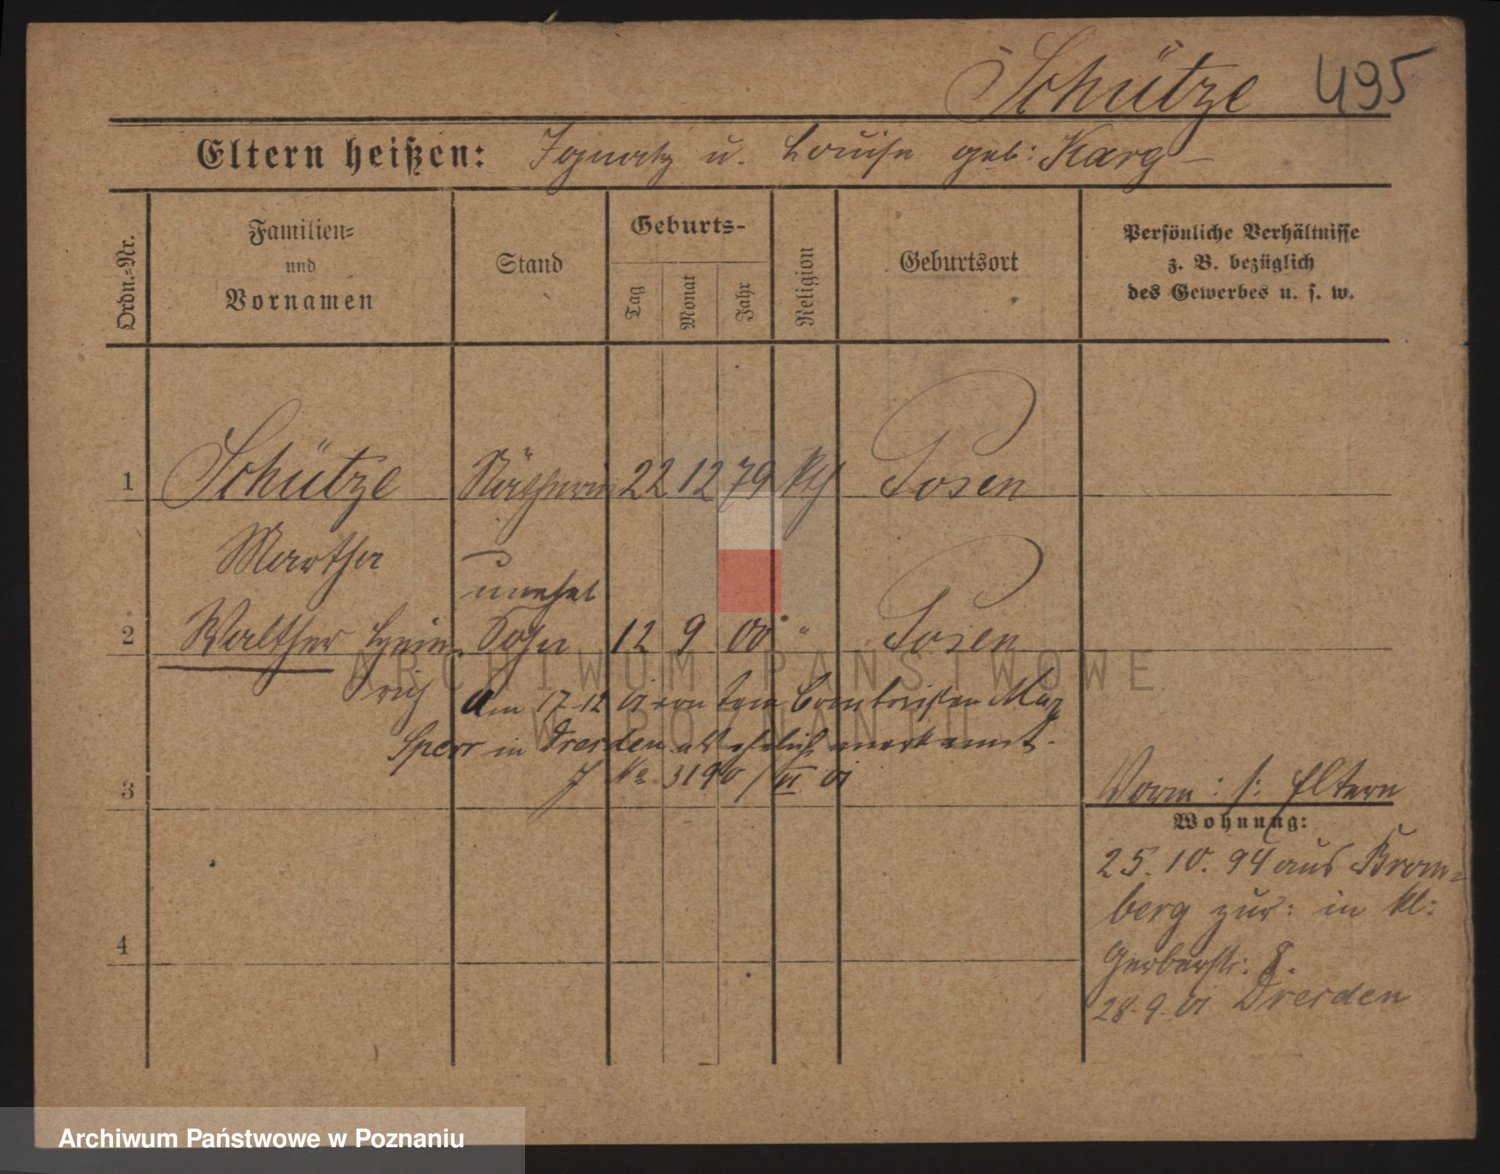 Schütze 495
Eltern heißen: Ignatz u. Louise geb: Karg
Ordn.-Nr.
Familien- und Vornamen
Stand
Geburts-
Tag
Monat
Jahr
Religion
Geburtsort
Persönliche Verhältnisse
z. B. bezüglich
des Gewerbes u. s. w.
1 Schütze Nätherin 22 12 79 kth Posen
Martha
unehel
2 Walther Hein- Sohn 12 9 00 " Posen
rich
am 17 12 01 von dem
Sperr in Dresden als ehelich anerkannt.
J No 3190/VI 01
3
4
Vorm: s: Eltern
Wohnung:
25. 10. 94 aus Brom-
berg zur: in kl:
Gerberstr: 8.
28. 9. 01 Dresden
ARCHIWUM PAŃSTWOWE
W POZNANIU
Archiwum Państwowe w Poznaniu